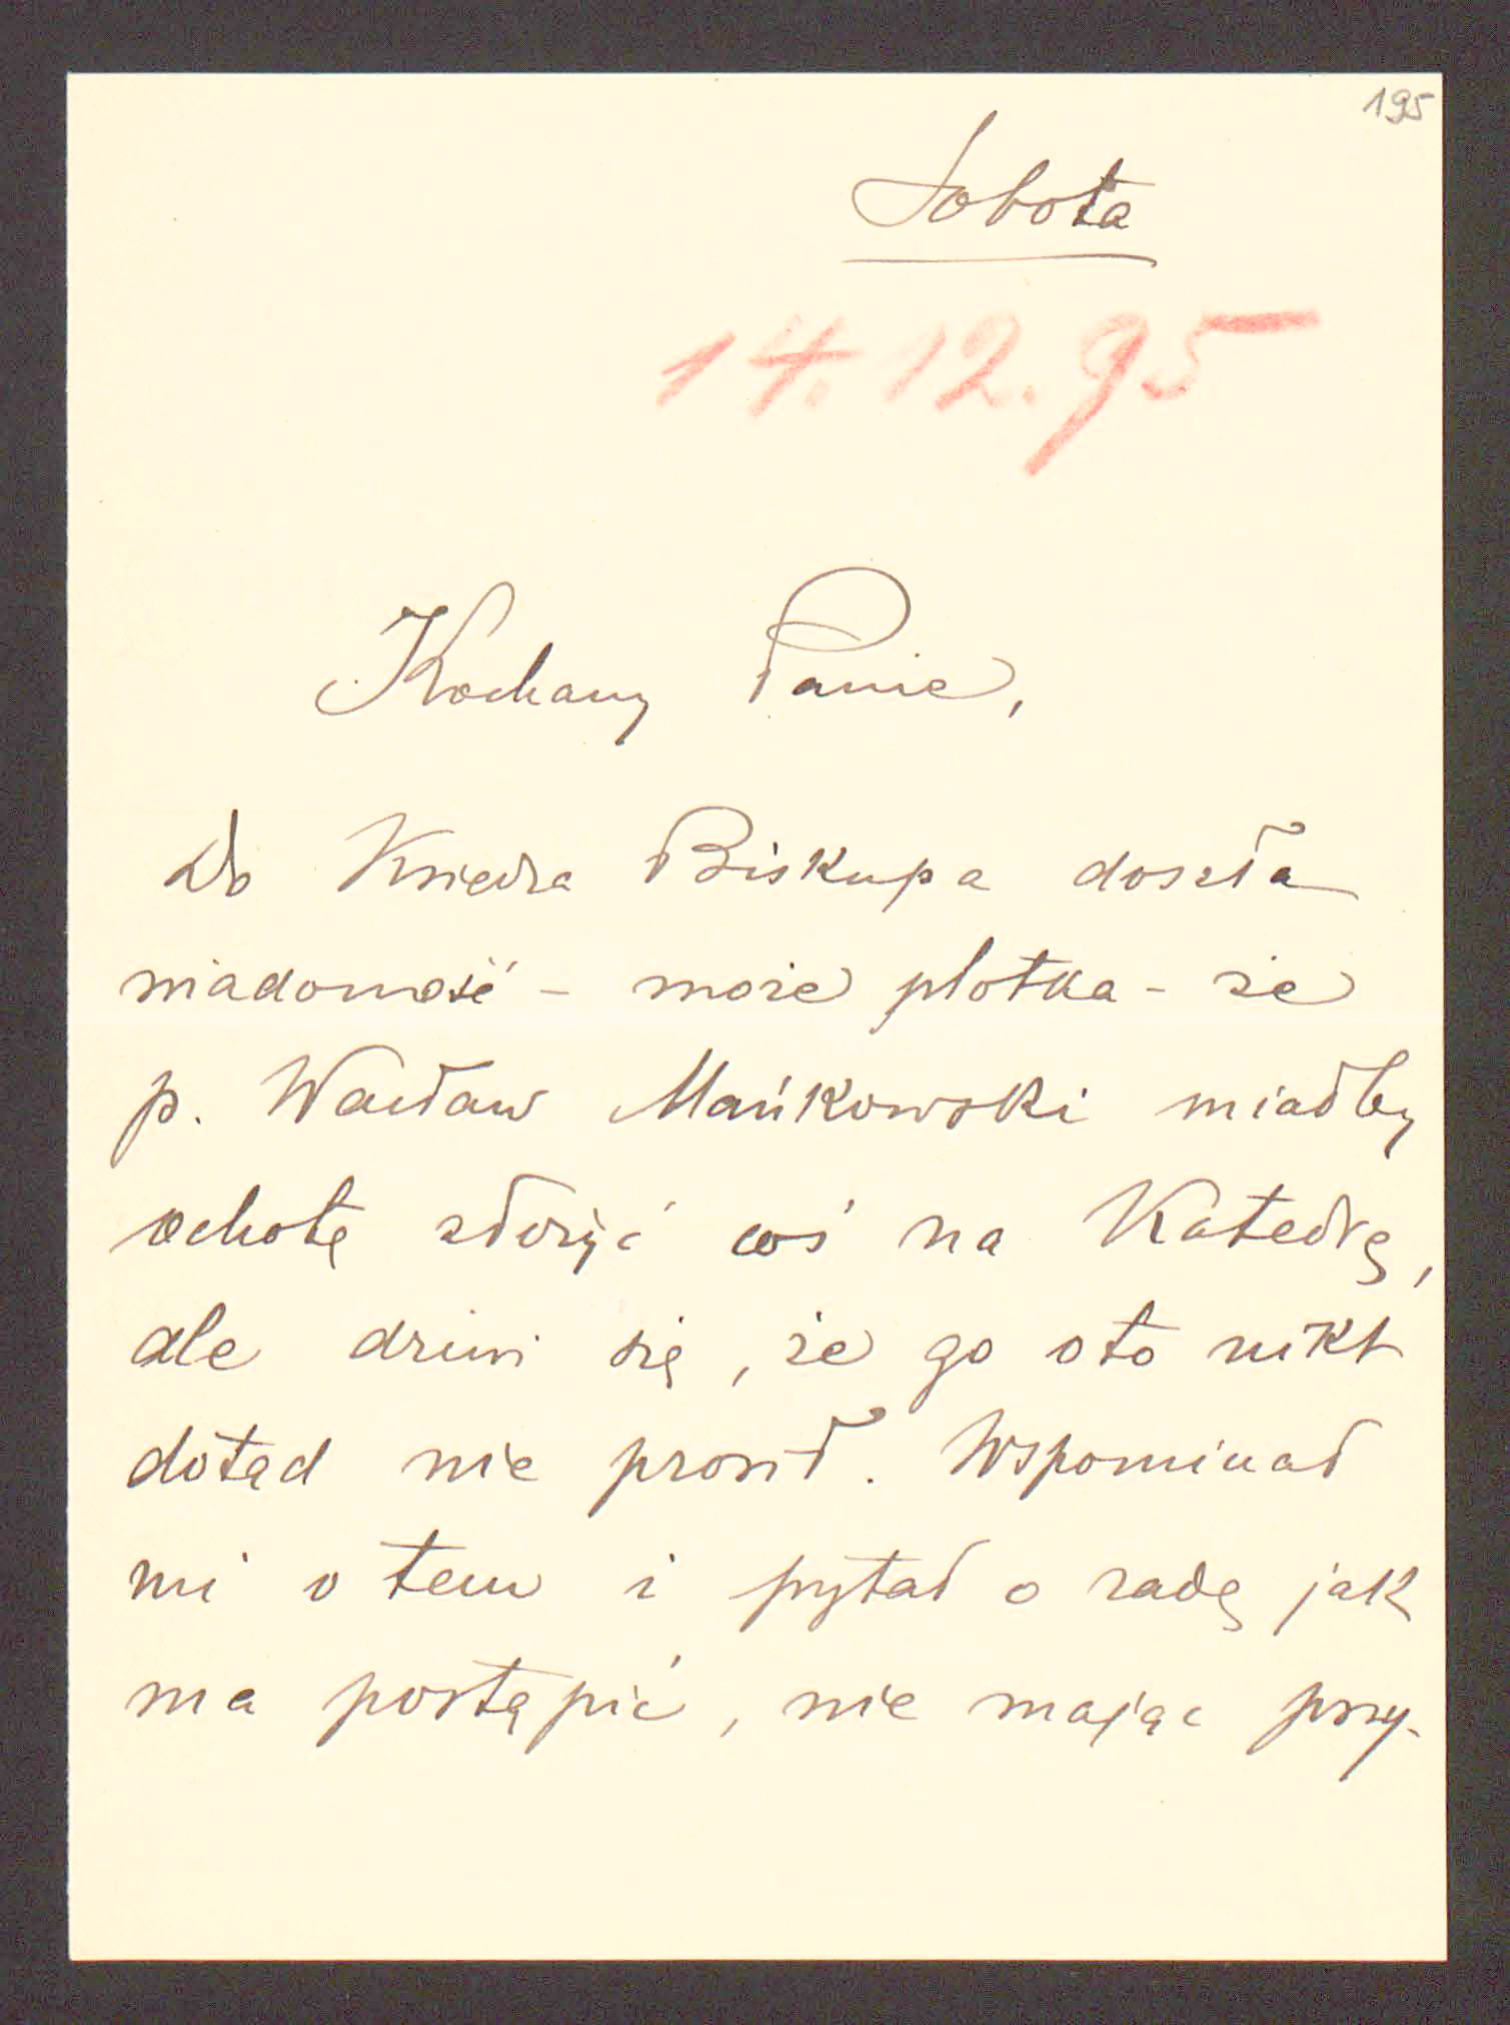 195
Sobota
14.12.95
Kochany Panie,
Do Księdza Biskupa doszła
wiadomość - może plotka - że
p. Wacław Mańkowski miałby
ochotę złożyć coś na Katedrę,
ale dziwi się, że go oto nikt
dotąd nie prosił. Wspominał
mi o tem i pytał o radę jak
ma postąpić, nie mając przy-